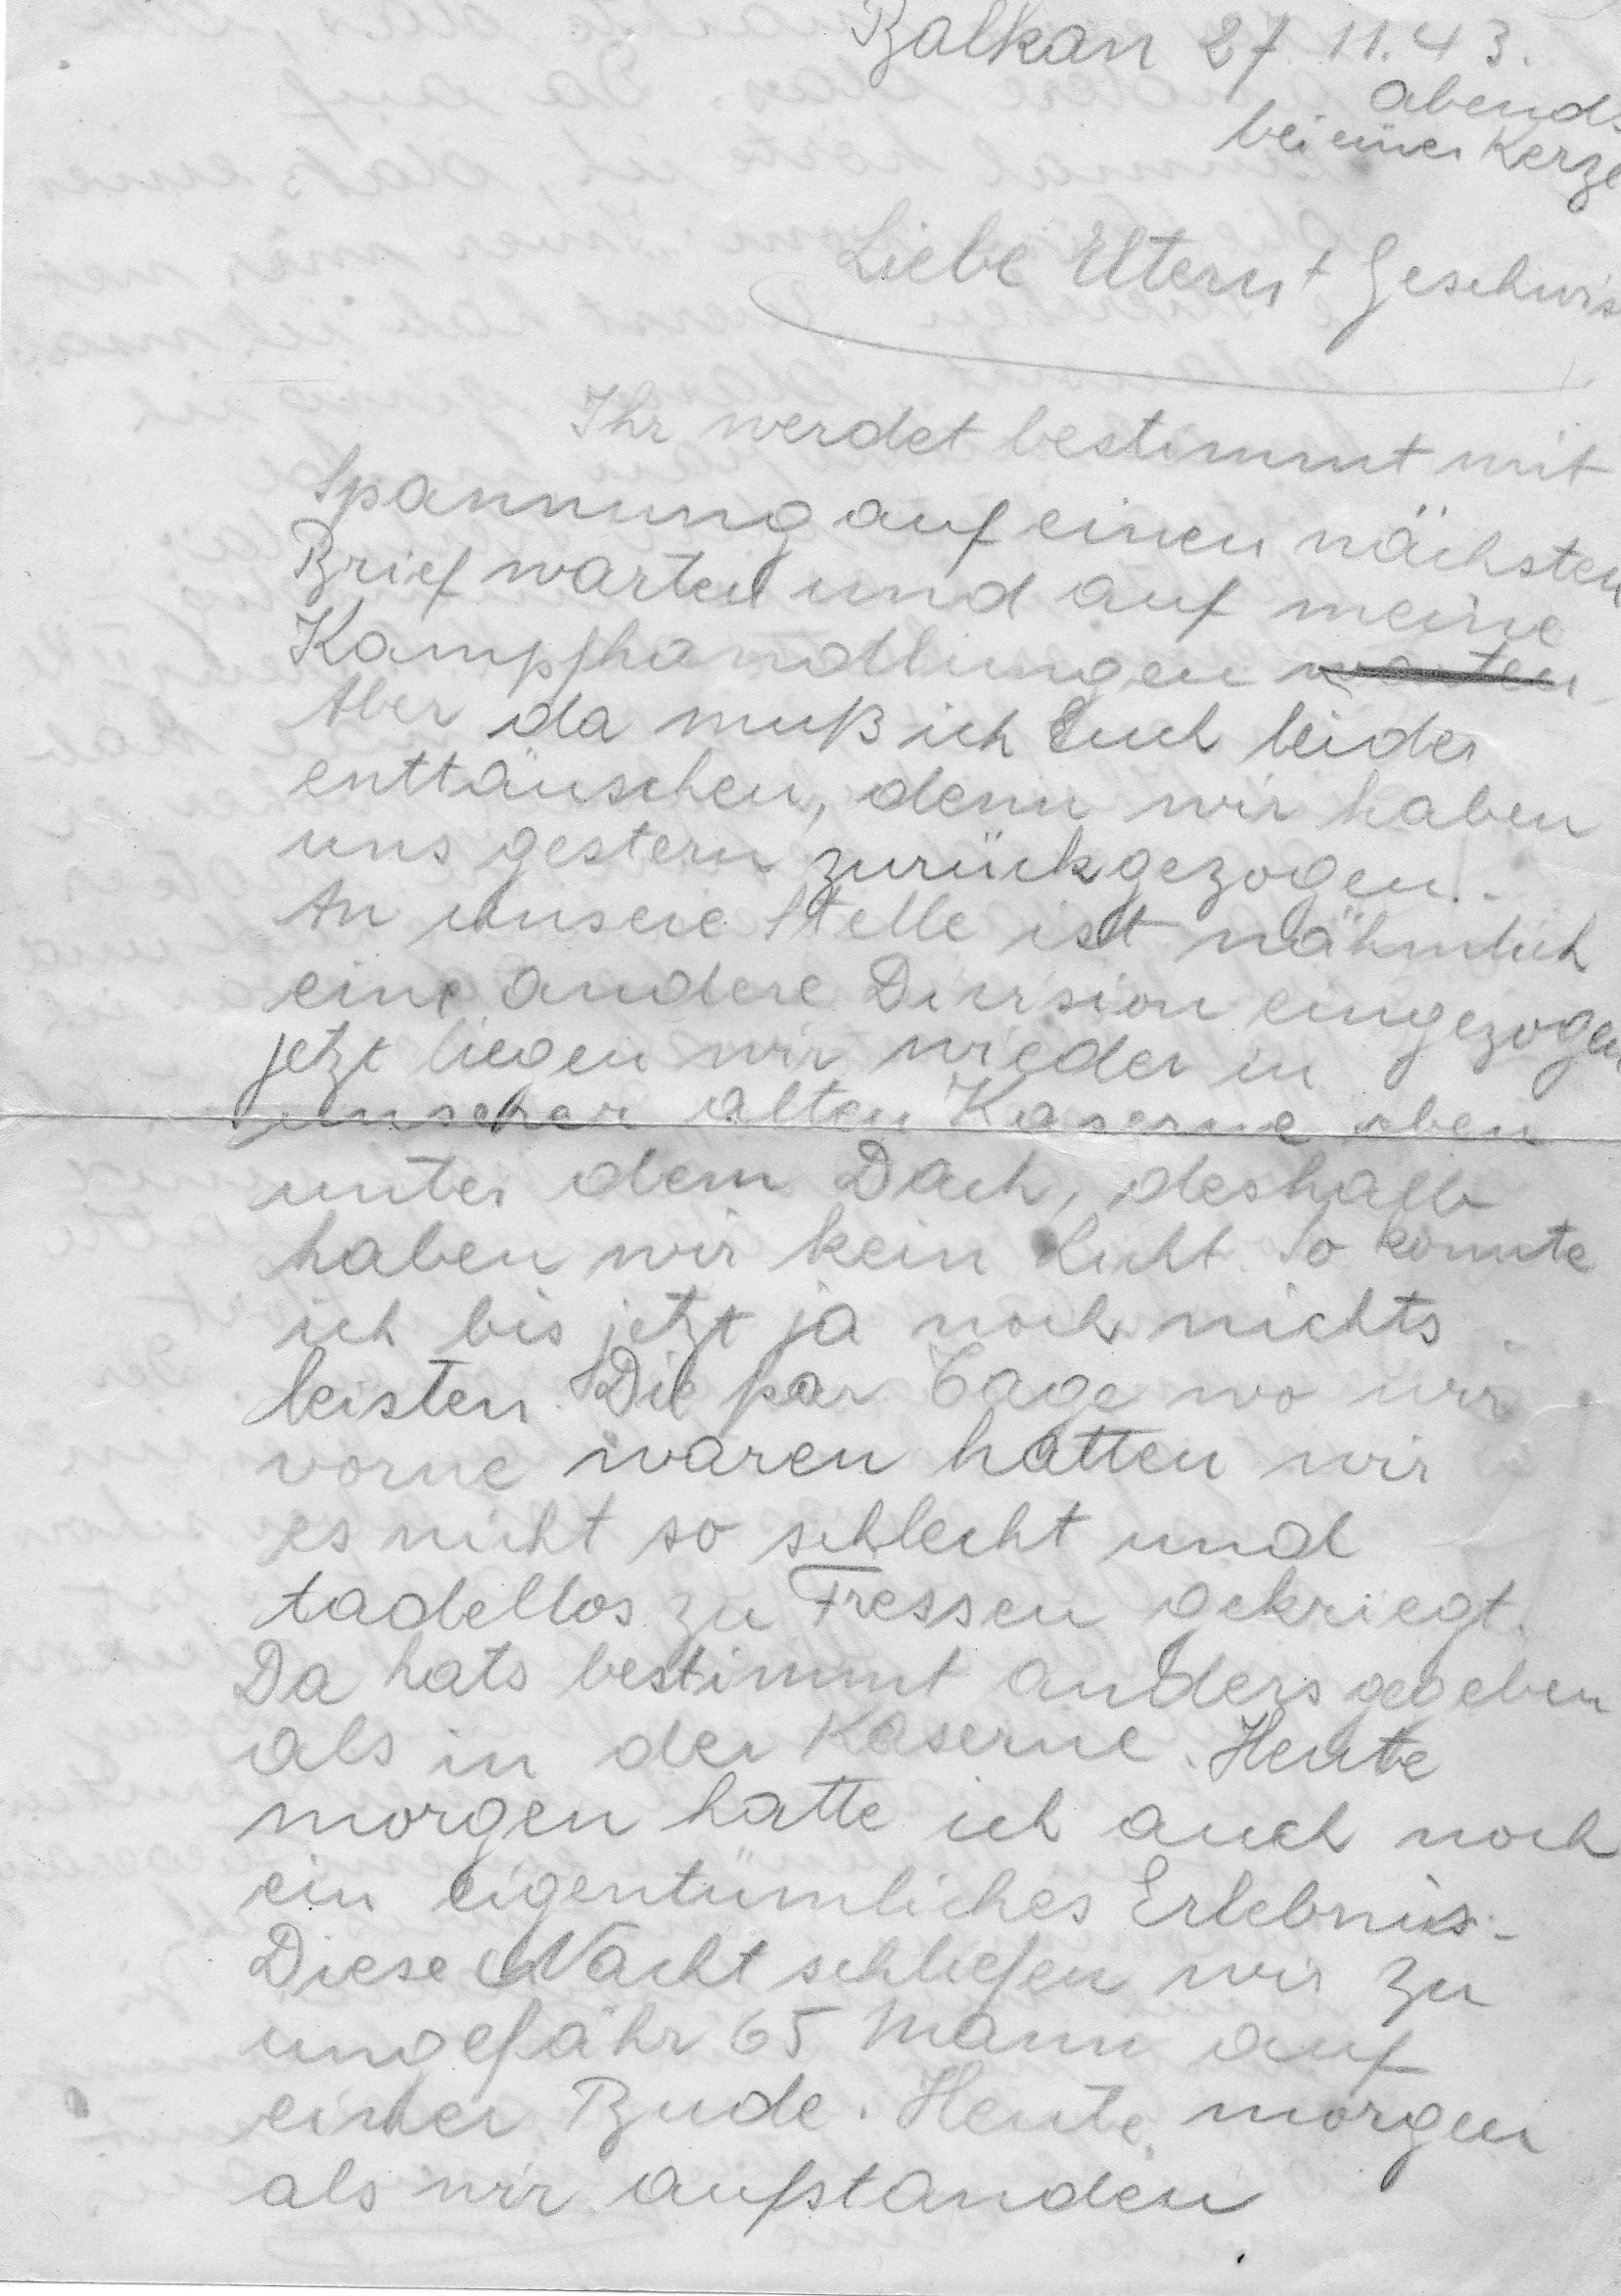 Balkan 27.11.43.
abends
bei einer Kerze
Liebe Eltern + Geschwis
Ihr werdet bestimmt mit
Spannung auf einen nächsten
Brief warten und auf meine
Kampfhandlungen warten
Aber da muß ich Euch leider
enttäuschen, denn wir haben
uns gestern zurückgezogen.-
An unsere Stelle ist nähmlich
eine andere Division eingezogen
jetzt liegen wir wieder in
unserer alten Kaserne oben
unter dem Dach, deshalb
haben wir kein Licht. So konnte
ich bis jetzt ja noch nichts
leisten. Die par Tage wo wir
vorne waren hatten wir
es nicht so schlecht und
tadellos zu Fressen gekriegt.
Da hats bestimmt anders gegeben
als in der Kaserne. Heute
morgen hatte ich auch noch
ein eigentümliches Erlebnis.-
Diese Nacht schliefen wir zu
ungefähr 65 Mann auf
einer Bude. Heute morgen
als wir aufstanden